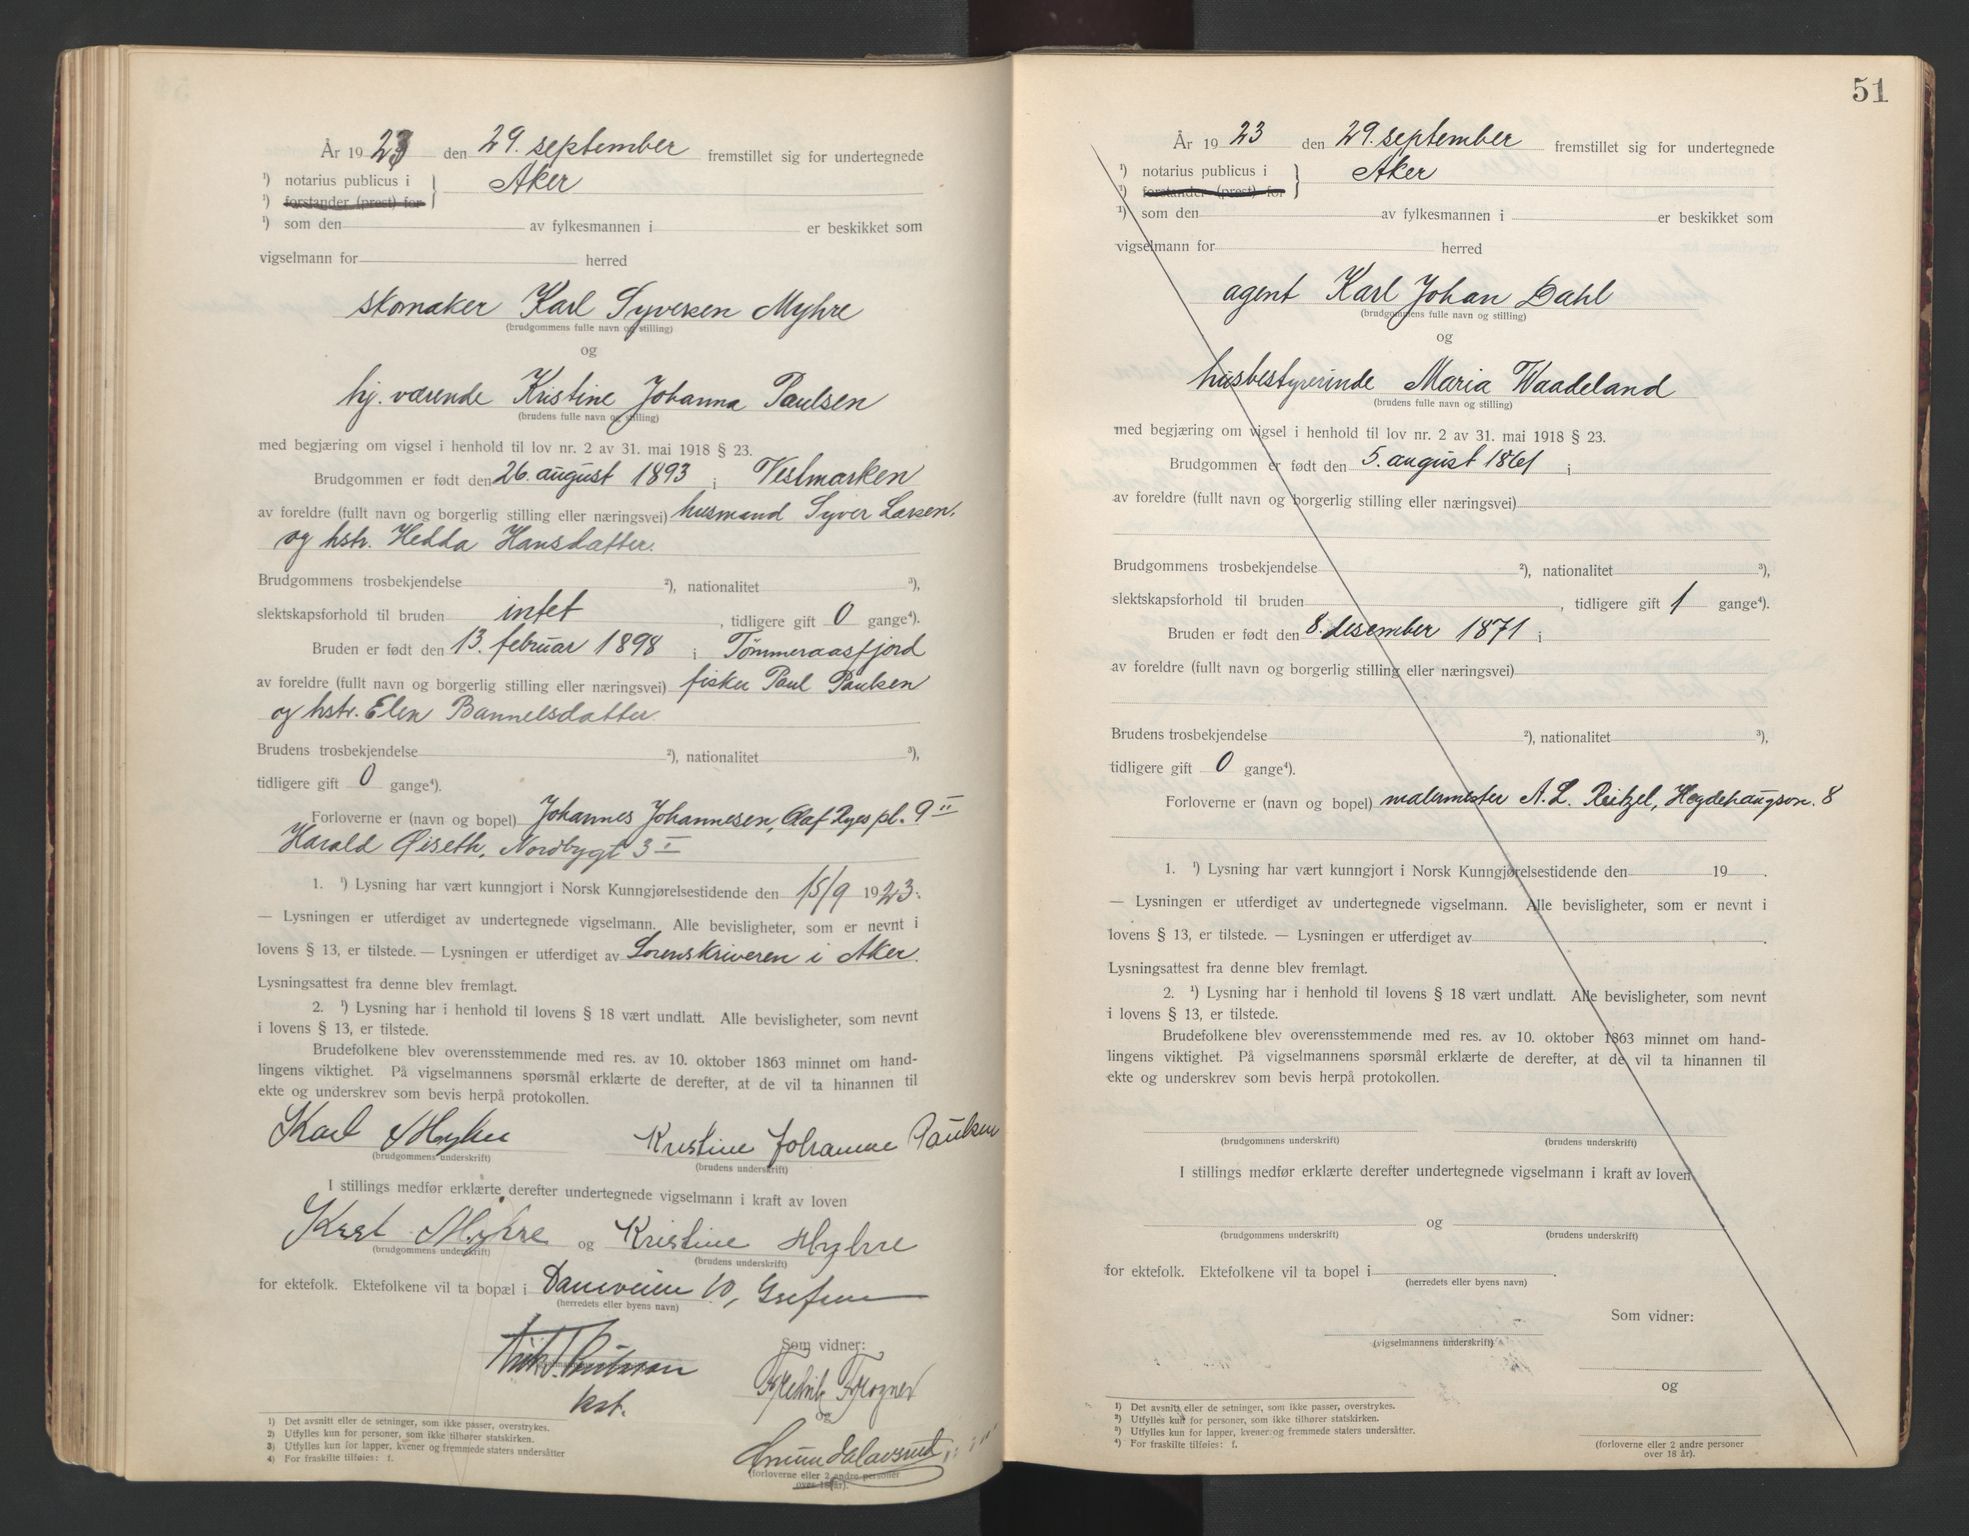 År 1923 den 29. september fremstillet sig for undertegnede
¹) notarius publicus i } Aker
¹) forstander (prest) for
¹) som den av fylkesmannen i er beskikket som
vigselmann for herred
skomaker Karl Syversen Myhre
(brudgommens fulle navn og stilling)
og
hj. værende Kristine Johanna Paulsen
(brudens fulle navn og stilling)
med begjæring om vigsel i henhold til lov nr. 2 av 31. mai 1918 § 23.
Brudgommen er født den 26. august 1893 i Vestmarken
av foreldre (fullt navn og borgerlig stilling eller næringsvei) husmand Syver Larsen.
og hstr. Hedda Hansdatter.
Brudgommens trosbekjendelse ²), nationalitet ³),
slektskapsforhold til bruden intet , tidligere gift 0 gange⁴).
Bruden er født den 13. februar 1898 i Tømmeraasfjord
av foreldre (fullt navn og borgerlig stilling eller næringsvei) fisker Paul Paulsen
og hstr. Elen Bannelsdatter.
Brudens trosbekjendelse ²), nationalitet ³),
tidligere gift 0 gange⁴).
Forloverne er (navn og bopel) Johannes Johannesen, Olaf Ryes pl. 9 II
Harald Øiseth, Nordbygt 3 I
1. ¹) Lysning har vært kunngjort i Norsk Kunngjørelsestidende den 15/9 1923.
— Lysningen er utferdiget av undertegnede vigselmann. Alle bevisligheter, som er nevnt i
lovens § 13, er tilstede. — Lysningen er utferdiget av Sorenskriveren i Aker.
Lysningsattest fra denne blev fremlagt.
2. ¹) Lysning har i henhold til lovens § 18 vært undlatt. Alle bevisligheter, som nevnt
i lovens § 13, er tilstede.
Brudefolkene blev overensstemmende med res. av 10. oktober 1863 minnet om hand-
lingens viktighet. På vigselmannens spørsmål erklærte de derefter, at de vil ta hinannen til
ekte og underskrev som bevis herpå protokollen.
Karl Myhre Kristine Johanne Paulsen
(brudgommens underskrift) (brudens underskrift)
I stillings medfør erklærte derefter undertegnede vigselmann i kraft av loven
Karl Myhre og Kristine Myhre
(brudgommens underskrift) (brudens underskrift)
for ektefolk. Ektefolkene vil ta bopæl i Damveien 10, Grefsen
(herredets eller byens navn)
Som vidner:
kst. Fredrik Frogner
og
Amund
(forloverne eller 2 andre personer
over 18 år).
1) Det avsnitt eller de setninger, som ikke passer, overstrykes.
2) Utfylles kun for personer, som ikke tilhører statskirken.
3) Utfylles kun for lapper, kvener og fremmede staters undersåtter
4) For fraskilte tilføies: f.
51
År 1923 den 29. september fremstillet sig for undertegnede
¹) notarius publicus i } Aker
¹) forstander (prest) for
¹) som den av fylkesmannen i er beskikket som
vigselmann for herred
agent Karl Johan Dahl
(brudgommens fulle navn og stilling)
og
husbestyrerinde Maria Waadeland
(brudens fulle navn og stilling)
med begjæring om vigsel i henhold til lov nr. 2 av 31. mai 1918 § 23.
Brudgommen er født den 5. august 1861 i
av foreldre (fullt navn og borgerlig stilling eller næringsvei)
Brudgommens trosbekjendelse ²), nationalitet ³),
slektskapsforhold til bruden , tidligere gift 1 gange⁴).
Bruden er født den 8. desember 1871 i
av foreldre (fullt navn og borgerlig stilling eller næringsvei)
Brudens trosbekjendelse ²), nationalitet ³),
tidligere gift 0 gange⁴).
Forloverne er (navn og bopel) malermester A. L. Reitzel, Hegdehaugsvn. 8
1. ¹) Lysning har vært kunngjort i Norsk Kunngjørelsestidende den 19 .
— Lysningen er utferdiget av undertegnede vigselmann. Alle bevisligheter, som er nevnt i
lovens § 13, er tilstede. — Lysningen er utferdiget av .
Lysningsattest fra denne blev fremlagt.
2. ¹) Lysning har i henhold til lovens § 18 vært undlatt. Alle bevisligheter, som nevnt
i lovens § 13, er tilstede.
Brudefolkene blev overensstemmende med res. av 10. oktober 1863 minnet om hand-
lingens viktighet. På vigselmannens spørsmål erklærte de derefter, at de vil ta hinannen til
ekte og underskrev som bevis herpå protokollen.
(brudgommens underskrift) (brudens underskrift)
I stillings medfør erklærte derefter undertegnede vigselmann i kraft av loven
og
(brudgommens underskrift) (brudens underskrift)
for ektefolk. Ektefolkene vil ta bopel i .
(herredets eller byens navn)
Som vidner:
(vigselmannens underskrift)
og
(forloverne eller 2 andre personer
over 18 år).
¹) Det avsnitt eller de setninger, som ikke passer, overstrykes.
²) Utfylles kun for personer, som ikke tilhører statskirken.
³) Utfylles kun for lapper, kvener og fremmede staters undersåtter.
⁴) For fraskilte tilføies: f.